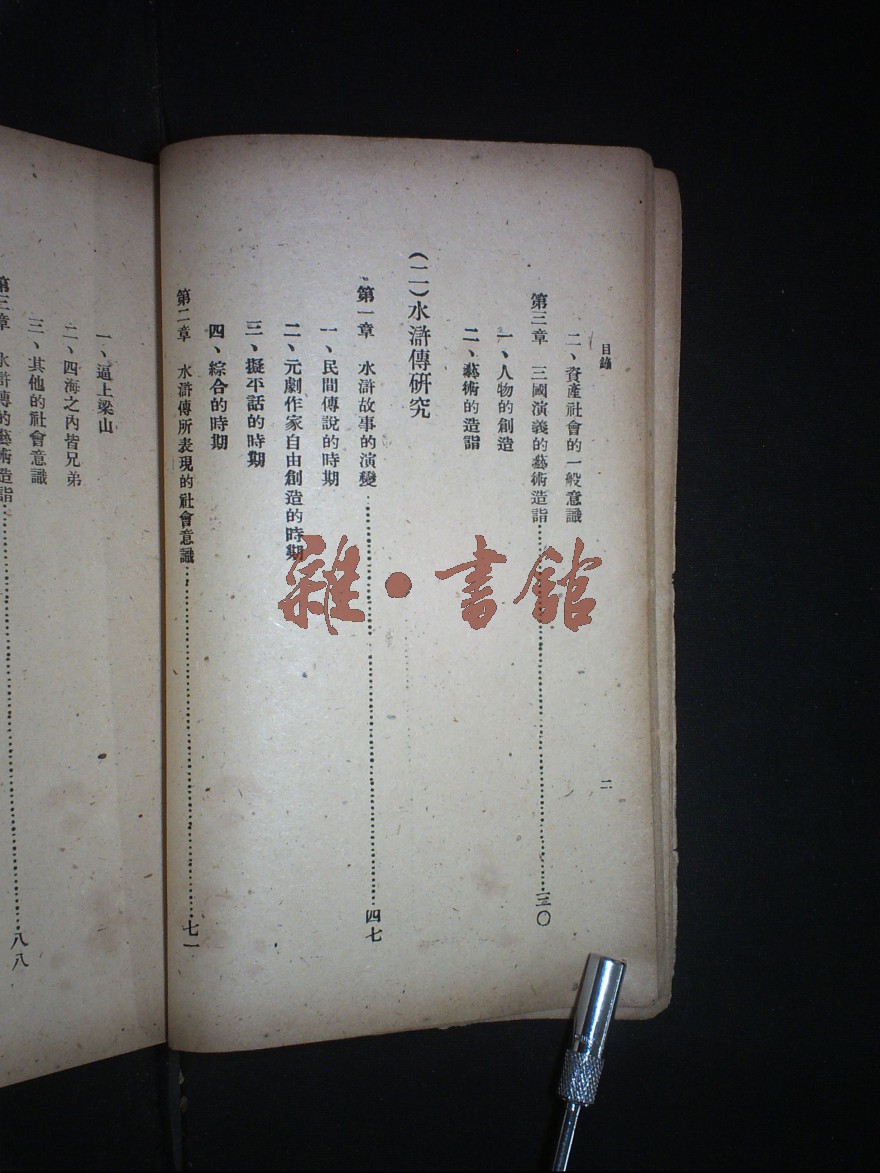 目錄
二、資產社會的一般意識
第三章　三國演義的藝術造詣……三〇
一、人物的創造
二、藝術的造詣
(二)水滸傳研究
第一章　水滸故事的演變……四七
一、民間傳說的時期
二、元劇作家自由創造的時期
三、擬平話的時期
四、綜合的時期
第二章　水滸傳所表現的社會意識……七一
二
一、逼上梁山
二、四海之內皆兄弟
三、其他的社會意識
第三章　水滸傳的藝術造詣……八八
雜·書館